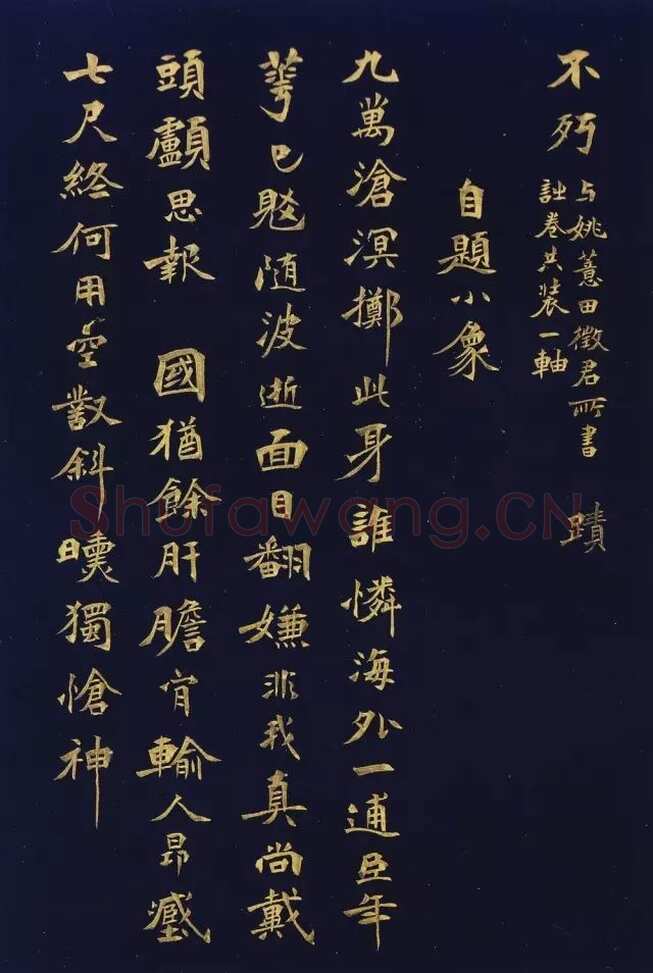 不朽
与姚薏田徵君所書
卷共裝一軸
蹟
自題小象
九萬滄溟擲此身誰憐海外一逋臣年
華已隨波逝面目翻嫌非我真尚戴
頭顱思報 國猶餘肝膽肯輸人昂藏
七尺終何用空對斜曛獨愴神
Shufawang.CN